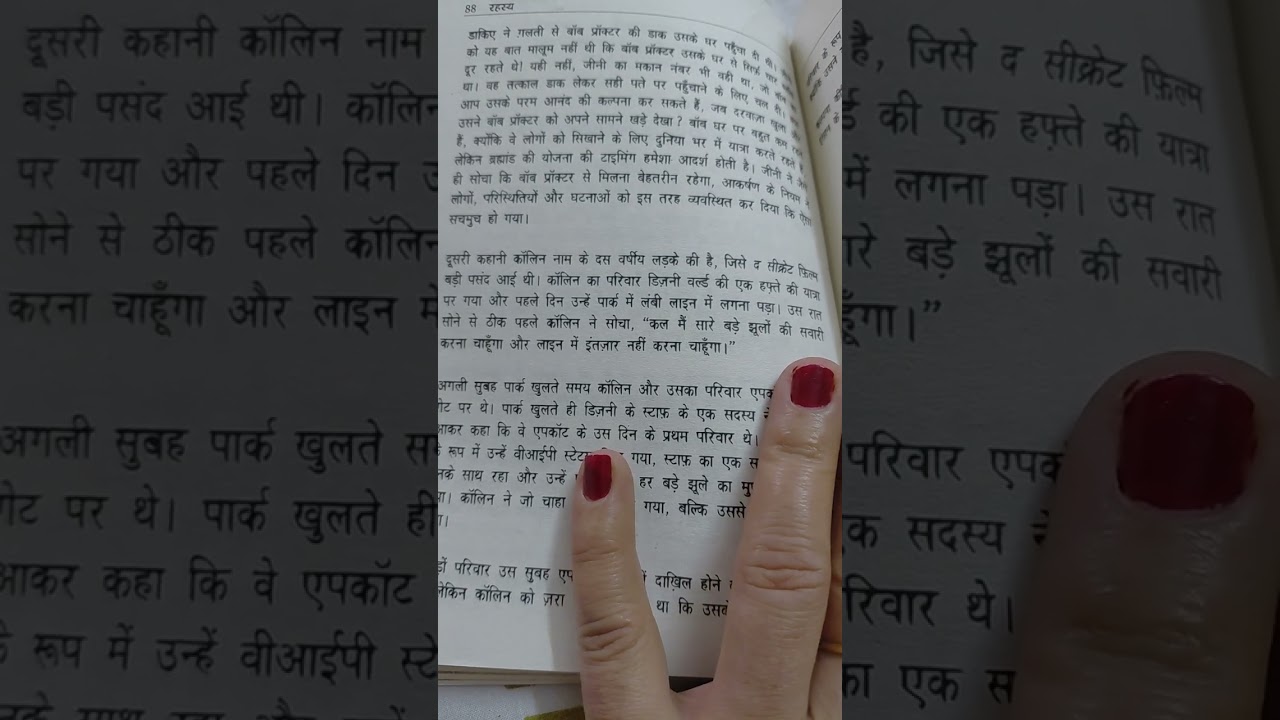 88 रहस्य
डाकिए ने ग़लती से बॉब प्रॉक्टर की डाक उसके घर पहुँचा दी थी।
को यह बात मालूम नहीं थी कि बॉब प्रॉक्टर उसके घर से सिर्फ़ चार
दूर रहते थे! यही नहीं, जीनी का मकान नंबर भी वही था, जो बॉब
था। वह तत्काल डाक लेकर सही पते पर पहुँचाने के लिए चल दी।
आप उसके परम आनंद की कल्पना कर सकते हैं, जब दरवाज़ा खुला और
उसने बॉब प्रॉक्टर को अपने सामने खड़े देखा? बॉब घर पर बहुत कम रहते
हैं, क्योंकि वे लोगों को सिखाने के लिए दुनिया भर में यात्रा करते रहते हैं,
लेकिन ब्रह्मांड की योजना की टाइमिंग हमेशा आदर्श होती है। जीनी ने जैसे
ही सोचा कि बॉब प्रॉक्टर से मिलना बेहतरीन रहेगा, आकर्षण के नियम ने
लोगों, परिस्थितियों और घटनाओं को इस तरह व्यवस्थित कर दिया कि ऐसा
सचमुच हो गया।
दूसरी कहानी कॉलिन नाम के दस वर्षीय लड़के की है, जिसे द सीक्रेट फ़िल्म
बड़ी पसंद आई थी। कॉलिन का परिवार डिज़नी वर्ल्ड की एक हफ़्ते की यात्रा
पर गया और पहले दिन उन्हें पार्क में लंबी लाइन में लगना पड़ा। उस रात
सोने से ठीक पहले कॉलिन ने सोचा, “कल मैं सारे बड़े झूलों की सवारी
करना चाहूँगा और लाइन में इंतज़ार नहीं करना चाहूँगा।”
अगली सुबह पार्क खुलते समय कॉलिन और उसका परिवार
गेट पर थे। पार्क खुलते ही डिज़नी के स्टाफ़ के एक सदस्य ने
आकर कहा कि वे एपकॉट के उस दिन के प्रथम परिवार थे।
के रूप में उन्हें वीआईपी गया, स्टाफ़ का एक
उनके साथ रहा और उन्हें हर बड़े झूले का
था। कॉलिन ने जो चाहा गया, बल्कि उससे
परिवार उस सुबह दाख़िल होने
लेकिन कॉलिन को ज़रा था कि